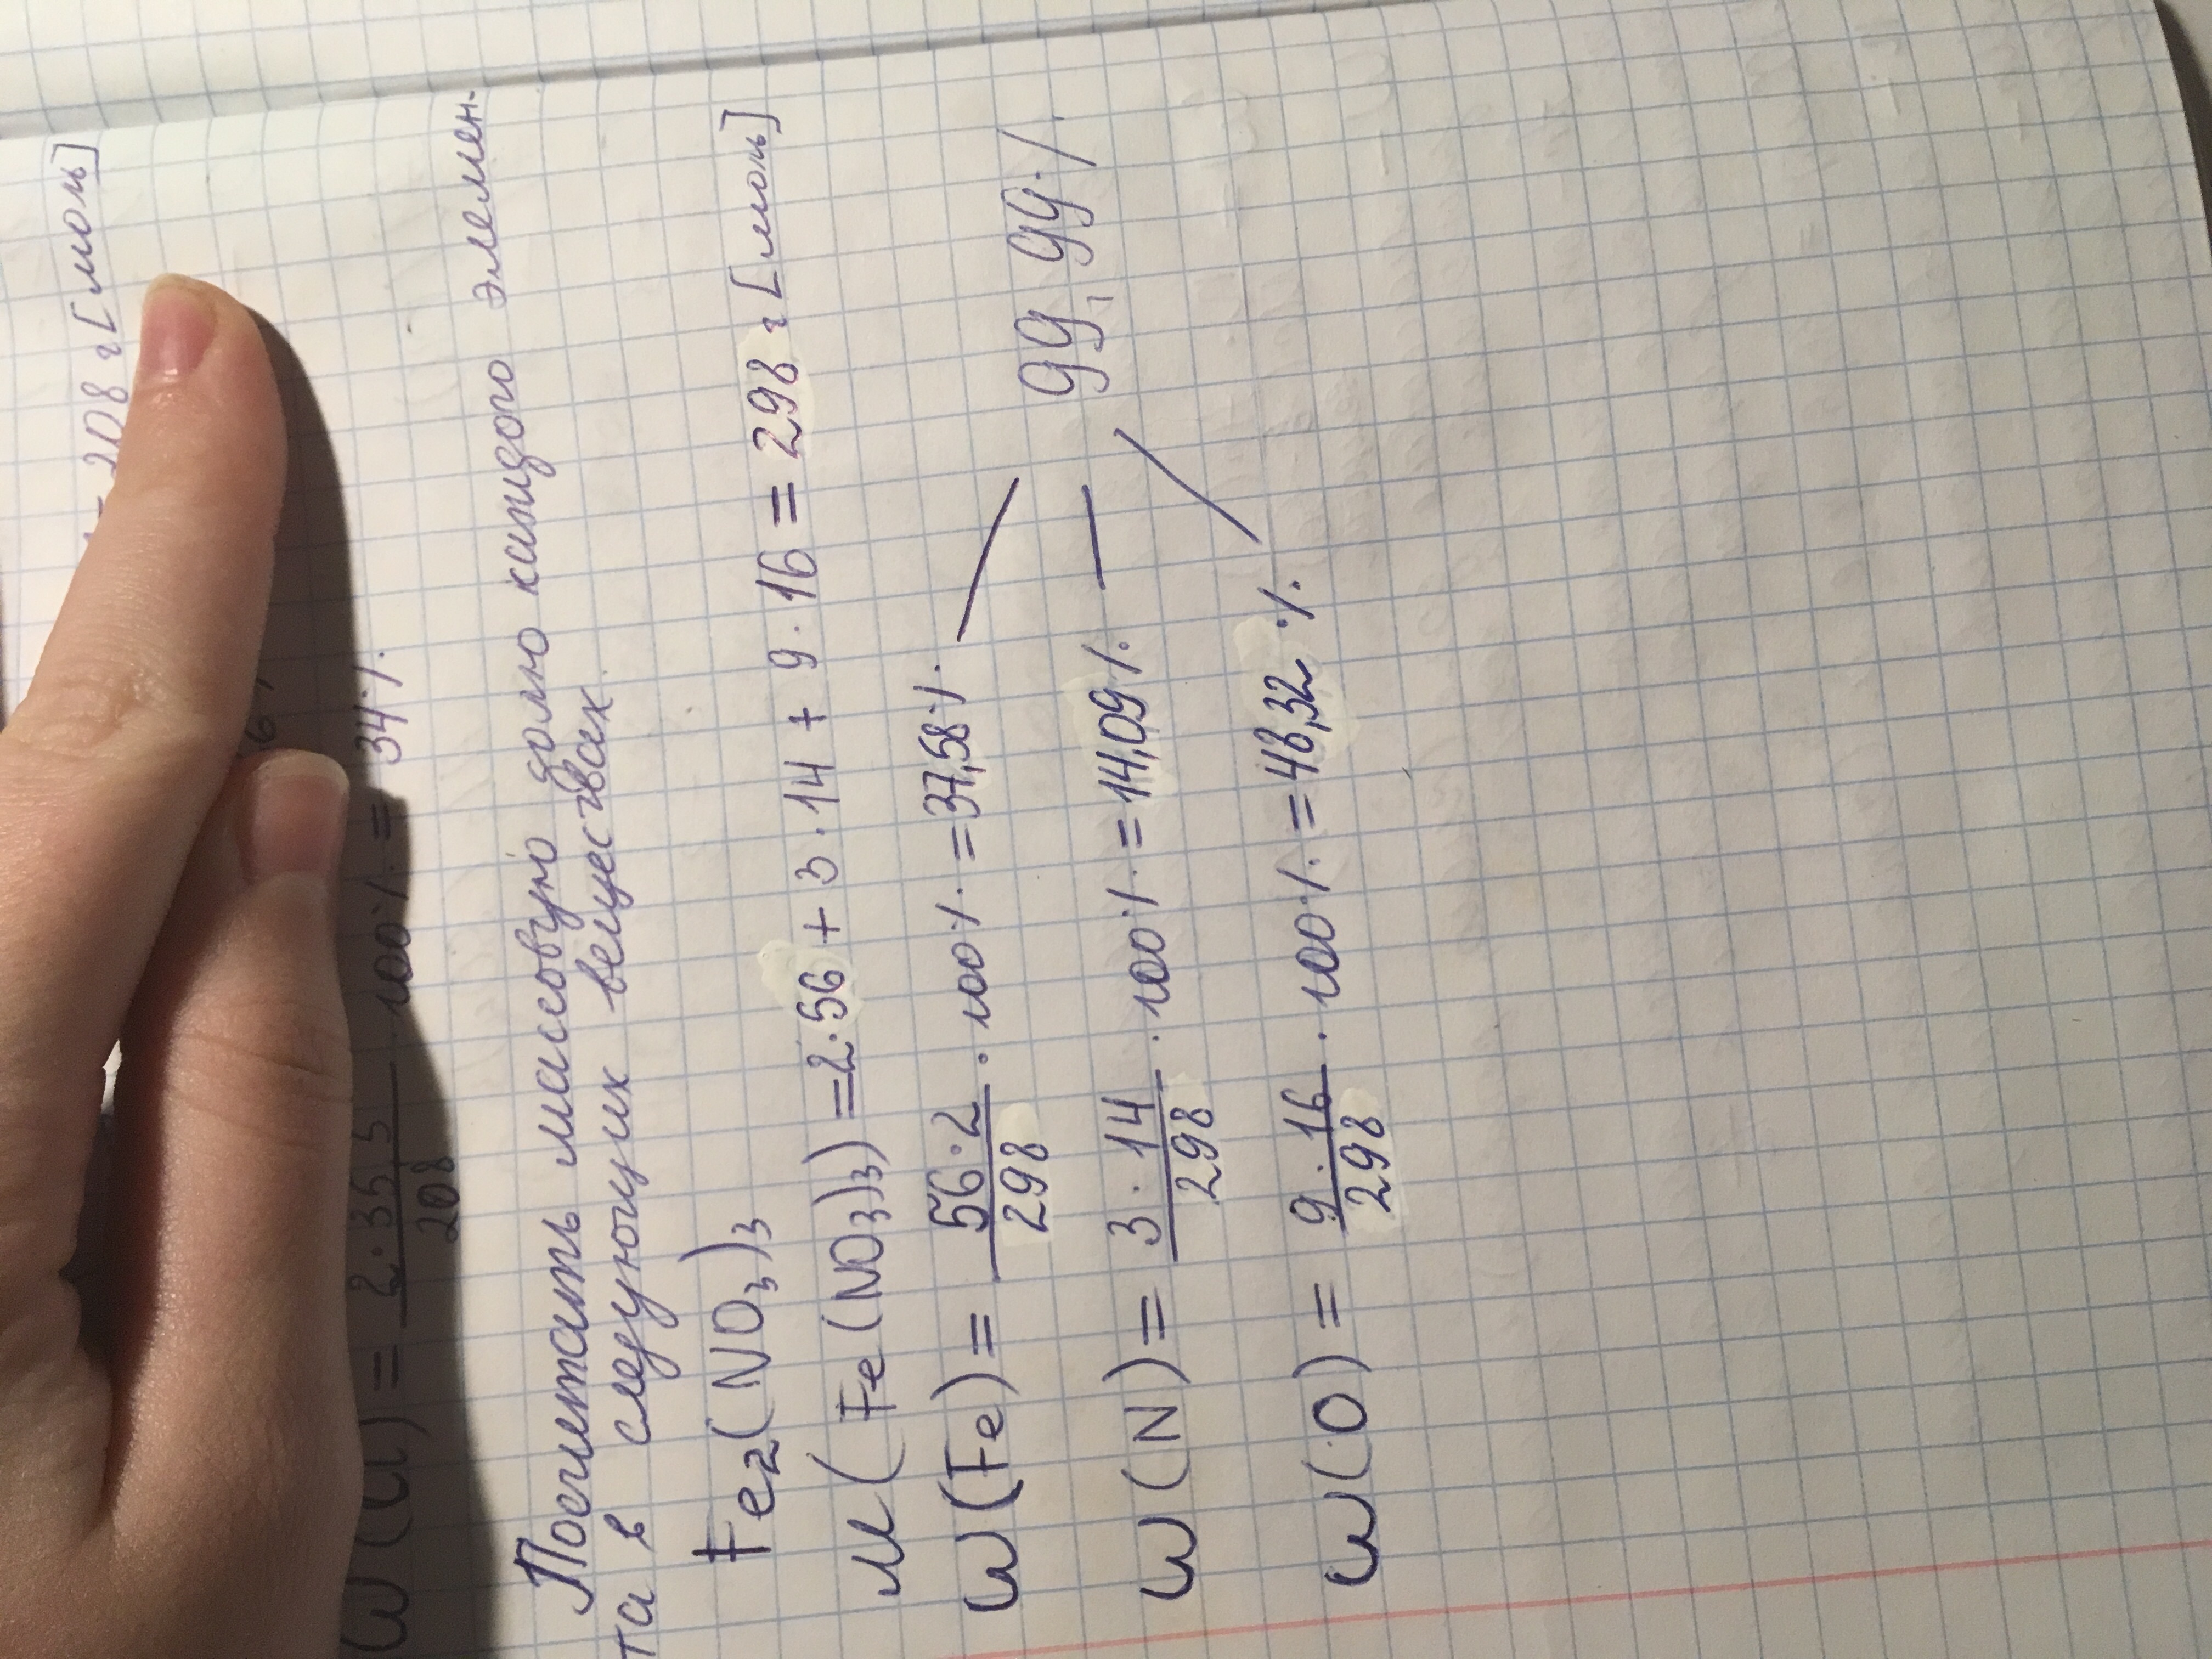 = 208 г [моль]
ω(Cl) = 2·35,5/208 100% = 34%
Посчитать массовую долю каждого элемен-
та в следующих веществах.
Fe₂(NO₃)₃
M(Fe(NO₃)₃) = 2·56 + 3·14 + 9·16 = 298 г [моль]
ω(Fe) = 56·2/298 · 100% = 37,58%
99,99%
ω(N) = 3·14/298 · 100% = 14,09%
ω(O) = 9·16/298 · 100% = 48,32%